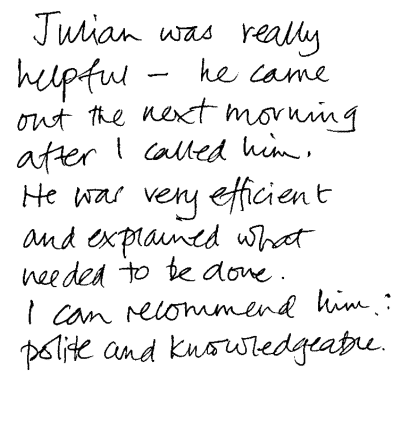 Julian was really
helpful – he came
out the next morning
after I called him.
He was very efficient
and explained what
needed to be done.
I can recommend him :
polite and knowledgeable.